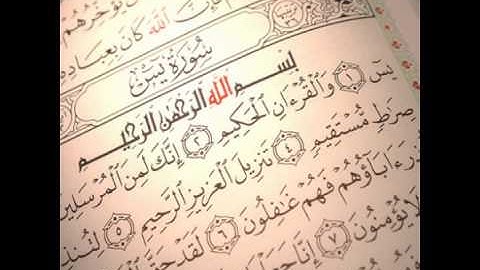 الله كَانَ بِعِبَادِهِ
سُورَةُ يسٓ
بِسْمِ اللَّهِ الرَّحْمَٰنِ الرَّحِيمِ
يسٓ ١ وَالْقُرْءَانِ الْحَكِيمِ ٢ إِنَّكَ لَمِنَ الْمُرْسَلِينَ
صِرَٰطٍ مُّسْتَقِيمٍ ٤ تَنزِيلَ الْعَزِيزِ الرَّحِيمِ ٥ لِتُنذِرَ
ءَابَاؤُهُمْ فَهُمْ غَٰفِلُونَ ٦ لَقَدْ حَقَّ
لَا يُؤْمِنُونَ ٧ إِنَّا جَعَلْنَا